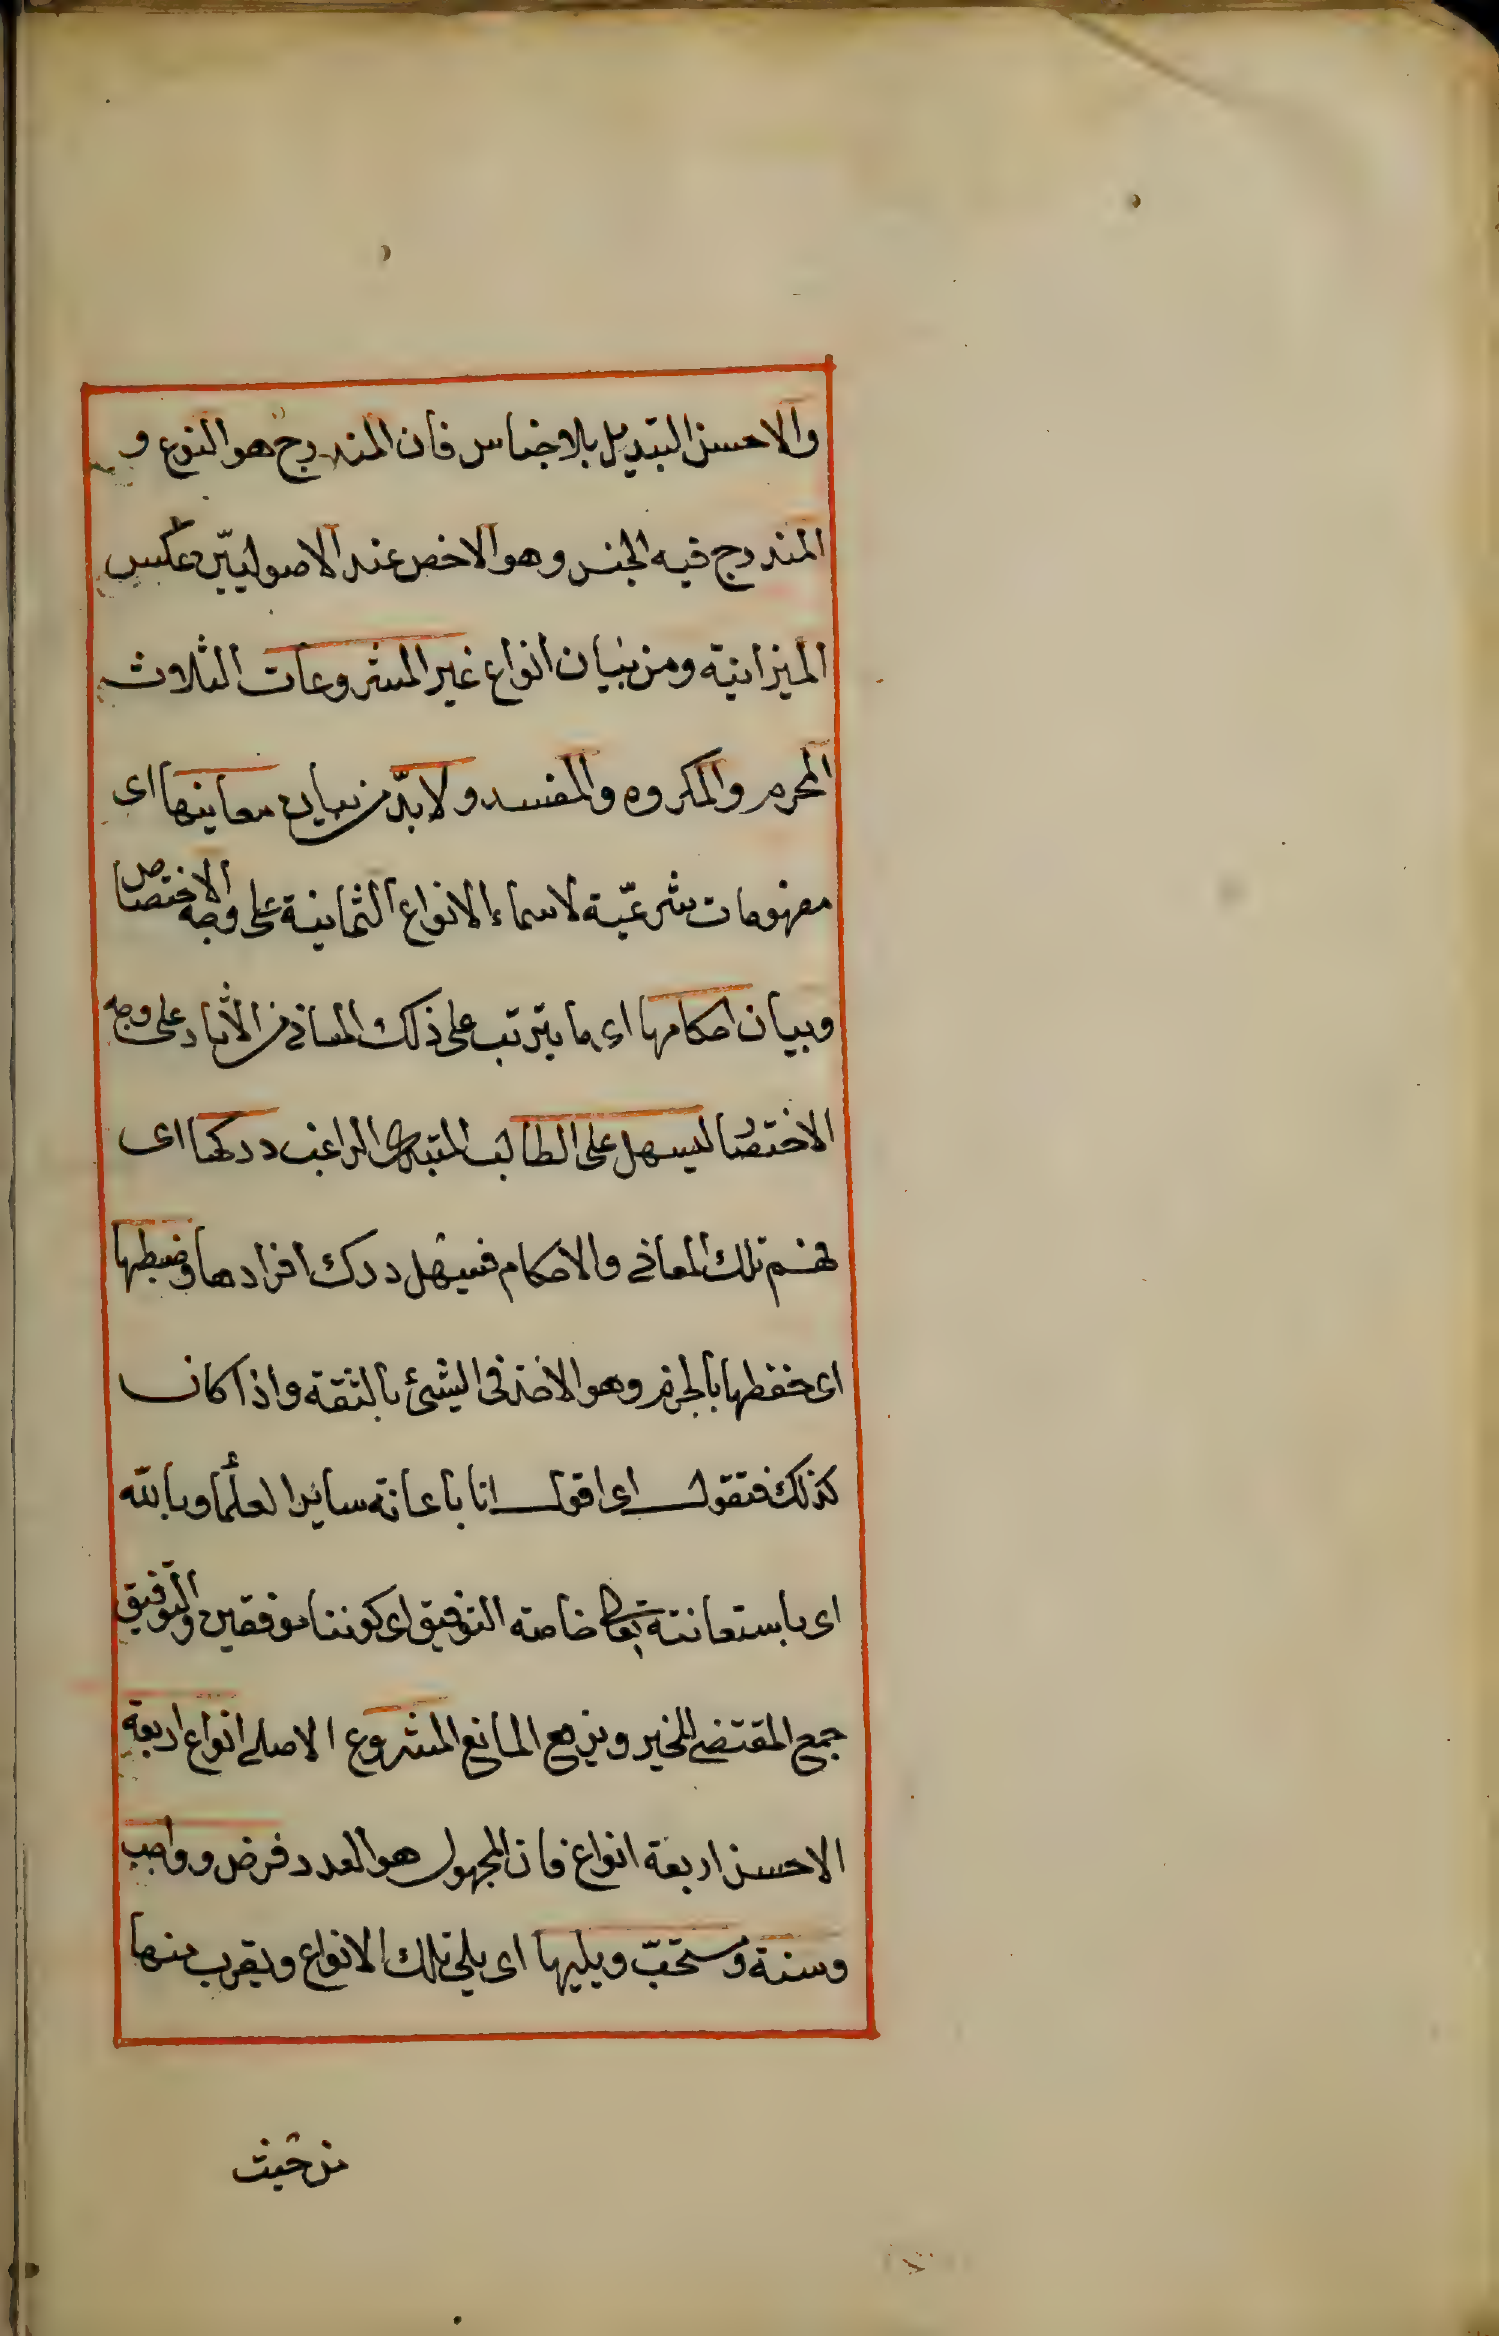 والاحسن التبديل بالاجناس فان المندرج هو النوع و
المندرج فيه الجنس وهو الاخص عند الاصوليين عكس
الميزانية ومن بيان انواع غير المشروعات الثلاث
المحرم والمكروه والمفسد ولا بدّ من بيان معاينها اى
مفهومات شرعيّة لاسماء الانواع الثمانية على وجه الاختصاص
وبيان احكامها اى ما يترتب على ذلك المعانى من الأثار على وجه
الاختصا ليسهل على الطالب المبتدى الراغب دركها اى
فهم تلك المعانى والاحكام فيسهل درك افرادها وضبطها
اى حفظها بالجزم وهو الاخذ فى الشئ بالثقة واذا كان
كذلك فنقول اى اقول انا باعانة سائر العلماء وبالله
اى باستعانته تعالى خاصة التوفيق اى كوننا موفقين والتوفيق
جمع المقتضى للخير ونزع المانع المشروع الاصلى انواع اربعة
الاحسن اربعة انواع فان المجهول هو العدد فرض وواجب
وسنة ومستحبّ ويليها اى يلى تلك الانواع ويقرب منها
من حيث